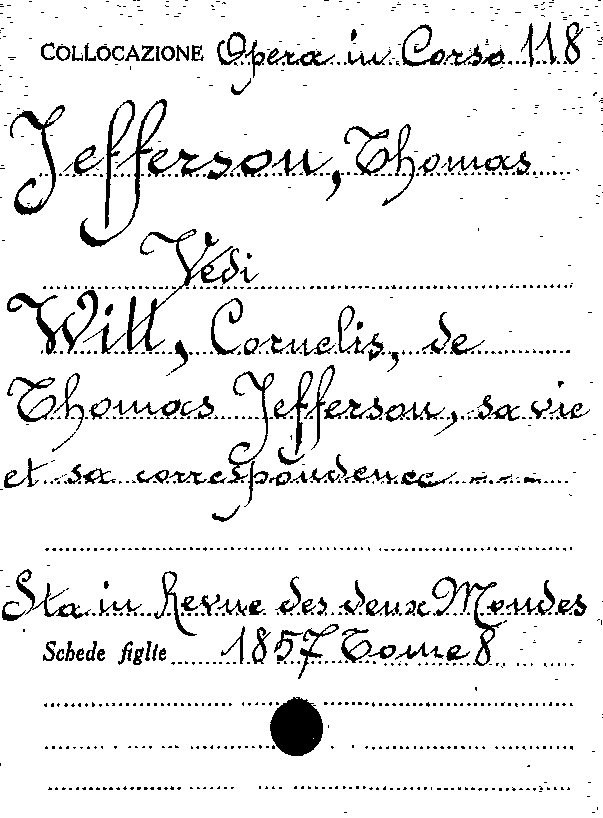 COLLOCAZIONE Opera in Corso 118
Jefferson, Thomas
Vedi
Witt, Cornelis, de
Thomas Jefferson, sa vie
et sa correspondence ---
Sta in Revue des deux Mondes
Schede figlie 1857 Tome 8